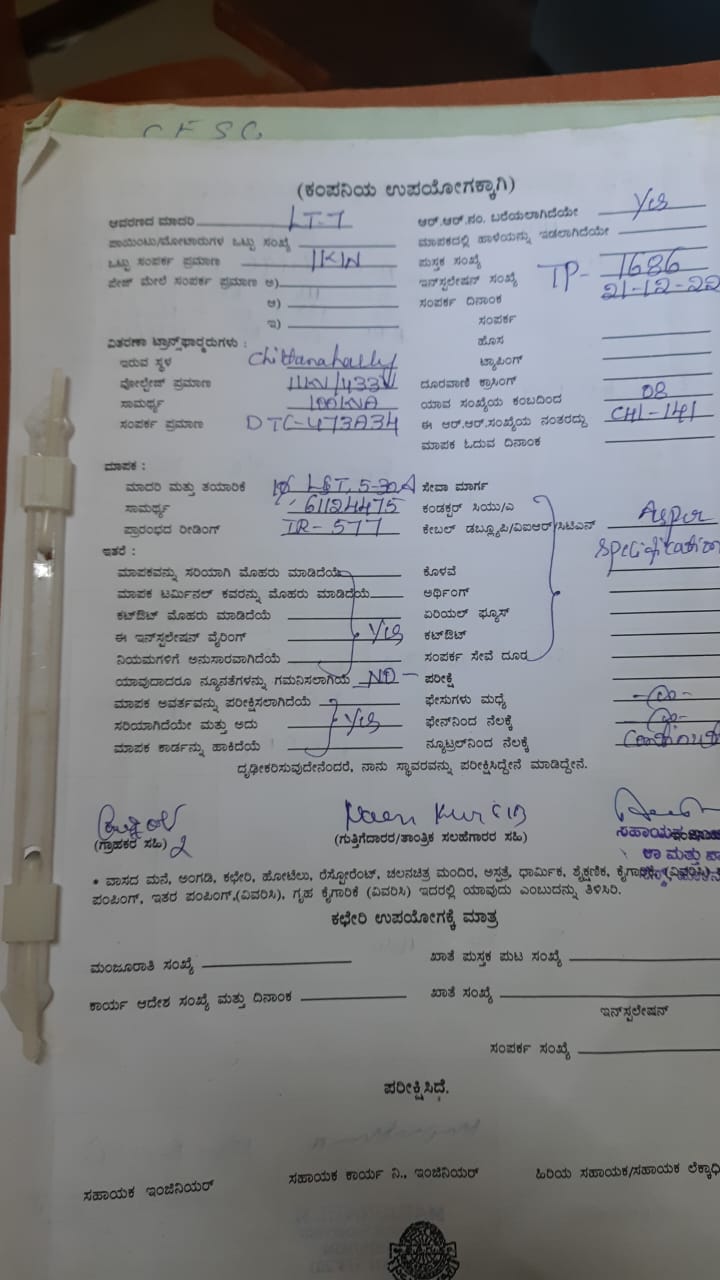 C F S C
(ಕಂಪನಿಯ ಉಪಯೋಗಕ್ಕಾಗಿ)
ಆವರಣದ ಮಾದರಿ LT-7
ಆರ್.ಆರ್.ನಂ. ಬರೆಯಲಾಗಿದೆಯೇ Yes
ಪಾಯಿಂಟು/ಮೋಟಾರುಗಳ ಒಟ್ಟು ಸಂಖ್ಯೆ
ಮಾಪಕದಲ್ಲಿ ಹಾಳೆಯನ್ನು ಇಡಲಾಗಿದೆಯೇ
ಒಟ್ಟು ಸಂಪರ್ಕ ಪ್ರಮಾಣ 1KW
ಪುಸ್ತಕ ಸಂಖ್ಯೆ
ಪೇಜ್ ಮೇಲೆ ಸಂಪರ್ಕ ಪ್ರಮಾಣ ಅ)
ಇನ್‌ಸ್ಟಲೇಷನ್ ಸಂಖ್ಯೆ TP- 1686
ಆ)
ಸಂಪರ್ಕ ದಿನಾಂಕ 21-12-22
ಇ)
ಸಂಪರ್ಕ
ವಿತರಣಾ ಟ್ರಾನ್ಸ್‌ಫಾರ್ಮರುಗಳು :
ಹೊಸ
ಇರುವ ಸ್ಥಳ Chittanahally
ಟ್ಯಾಪಿಂಗ್
ವೋಲ್ಟೇಜ್ ಪ್ರಮಾಣ 11KV/433V
ದೂರವಾಣಿ ಕ್ರಾಸಿಂಗ್
ಸಾಮರ್ಥ್ಯ 100KVA
ಯಾವ ಸಂಖ್ಯೆಯ ಕಂಬದಿಂದ 08
ಸಂಪರ್ಕ ಪ್ರಮಾಣ DTC-473A34
ಈ ಆರ್.ಆರ್.ಸಂಖ್ಯೆಯ ನಂತರದ್ದು CH1-141
ಮಾಪಕ ಓದುವ ದಿನಾಂಕ
ಮಾಪಕ :
ಮಾದರಿ ಮತ್ತು ತಯಾರಿಕೆ 1Ø L&T, 5-30A
ಸೇವಾ ಮಾರ್ಗ
ಸಾಮರ್ಥ್ಯ 61124475
ಕಂಡಕ್ಟರ್ ಸಿಯು/ಎ
ಪ್ರಾರಂಭದ ರೀಡಿಂಗ್ IR-577
ಕೇಬಲ್ ಡಬ್ಲ್ಯೂಪಿ/ವಿಐಆರ್/ಸಿಟಿಎನ್ Asper
Specification
ಇತರೆ :
ಮಾಪಕವನ್ನು ಸರಿಯಾಗಿ ಮೊಹರು ಮಾಡಿದೆಯೆ
ಕೊಳವೆ
ಮಾಪಕ ಟರ್ಮಿನಲ್ ಕವರನ್ನು ಮೊಹರು ಮಾಡಿದೆಯೆ
ಅರ್ಥಿಂಗ್
ಕಟ್‌ಔಟ್ ಮೊಹರು ಮಾಡಿದೆಯೆ
ಏರಿಯಲ್ ಫ್ಯೂಸ್
ಈ ಇನ್‌ಸ್ಟಲೇಷನ್ ವೈರಿಂಗ್ Yes
ಕಟ್‌ಔಟ್
ನಿಯಮಗಳಿಗೆ ಅನುಸಾರವಾಗಿದೆಯೆ
ಸಂಪರ್ಕ ಸೇವೆ ದೂರ
ಯಾವುದಾದರೂ ನ್ಯೂನತೆಗಳನ್ನು ಗಮನಿಸಲಾಗಿಯೆ NO
ಪರೀಕ್ಷೆ
ಮಾಪಕ ಅವರ್ತವನ್ನು ಪರೀಕ್ಷಿಸಲಾಗಿದೆಯೆ
ಫೇಸುಗಳು ಮಧ್ಯೆ
ಸರಿಯಾಗಿದೆಯೇ ಮತ್ತು ಅದು Yes
ಫೇಸ್‌ನಿಂದ ನೆಲಕ್ಕೆ
ಮಾಪಕ ಕಾರ್ಡನ್ನು ಹಾಕಿದೆಯೆ
ನ್ಯೂಟ್ರಲ್‌ನಿಂದ ನೆಲಕ್ಕೆ
ದೃಢೀಕರಿಸುವುದೇನೆಂದರೆ, ನಾನು ಸ್ಥಾವರವನ್ನು ಪರೀಕ್ಷಿಸಿದ್ದೇನೆ ಮಾಡಿದ್ದೇನೆ.
(ಗ್ರಾಹಕರ ಸಹಿ)
(ಗುತ್ತಿಗೆದಾರರ/ತಾಂತ್ರಿಕ ಸಲಹೆಗಾರರ ಸಹಿ)
ಸಹಾಯಕ
* ವಾಸದ ಮನೆ, ಅಂಗಡಿ, ಕಛೇರಿ, ಹೋಟೆಲು, ರೆಸ್ಟೋರೆಂಟ್, ಚಲನಚಿತ್ರ ಮಂದಿರ, ಆಸ್ಪತ್ರೆ, ಧಾರ್ಮಿಕ, ಶೈಕ್ಷಣಿಕ, ಕೈಗಾರಿಕೆ, (ವಿವರಿಸಿ)
ಪಂಪಿಂಗ್, ಇತರ ಪಂಪಿಂಗ್,(ವಿವರಿಸಿ), ಗೃಹ ಕೈಗಾರಿಕೆ (ವಿವರಿಸಿ) ಇದರಲ್ಲಿ ಯಾವುದು ಎಂಬುದನ್ನು ತಿಳಿಸಿರಿ.
ಕಛೇರಿ ಉಪಯೋಗಕ್ಕೆ ಮಾತ್ರ
ಮಂಜೂರಾತಿ ಸಂಖ್ಯೆ
ಖಾತೆ ಪುಸ್ತಕ ಪುಟ ಸಂಖ್ಯೆ
ಕಾರ್ಯ ಆದೇಶ ಸಂಖ್ಯೆ ಮತ್ತು ದಿನಾಂಕ
ಖಾತೆ ಸಂಖ್ಯೆ
ಇನ್‌ಸ್ಟಲೇಷನ್
ಸಂಪರ್ಕ ಸಂಖ್ಯೆ
ಪರೀಕ್ಷಿಸಿದೆ.
ಸಹಾಯಕ ಇಂಜಿನಿಯರ್
ಸಹಾಯಕ ಕಾರ್ಯ ನಿ., ಇಂಜಿನಿಯರ್
ಹಿರಿಯ ಸಹಾಯಕ/ಸಹಾಯಕ ಲೆಕ್ಕಾಧಿ